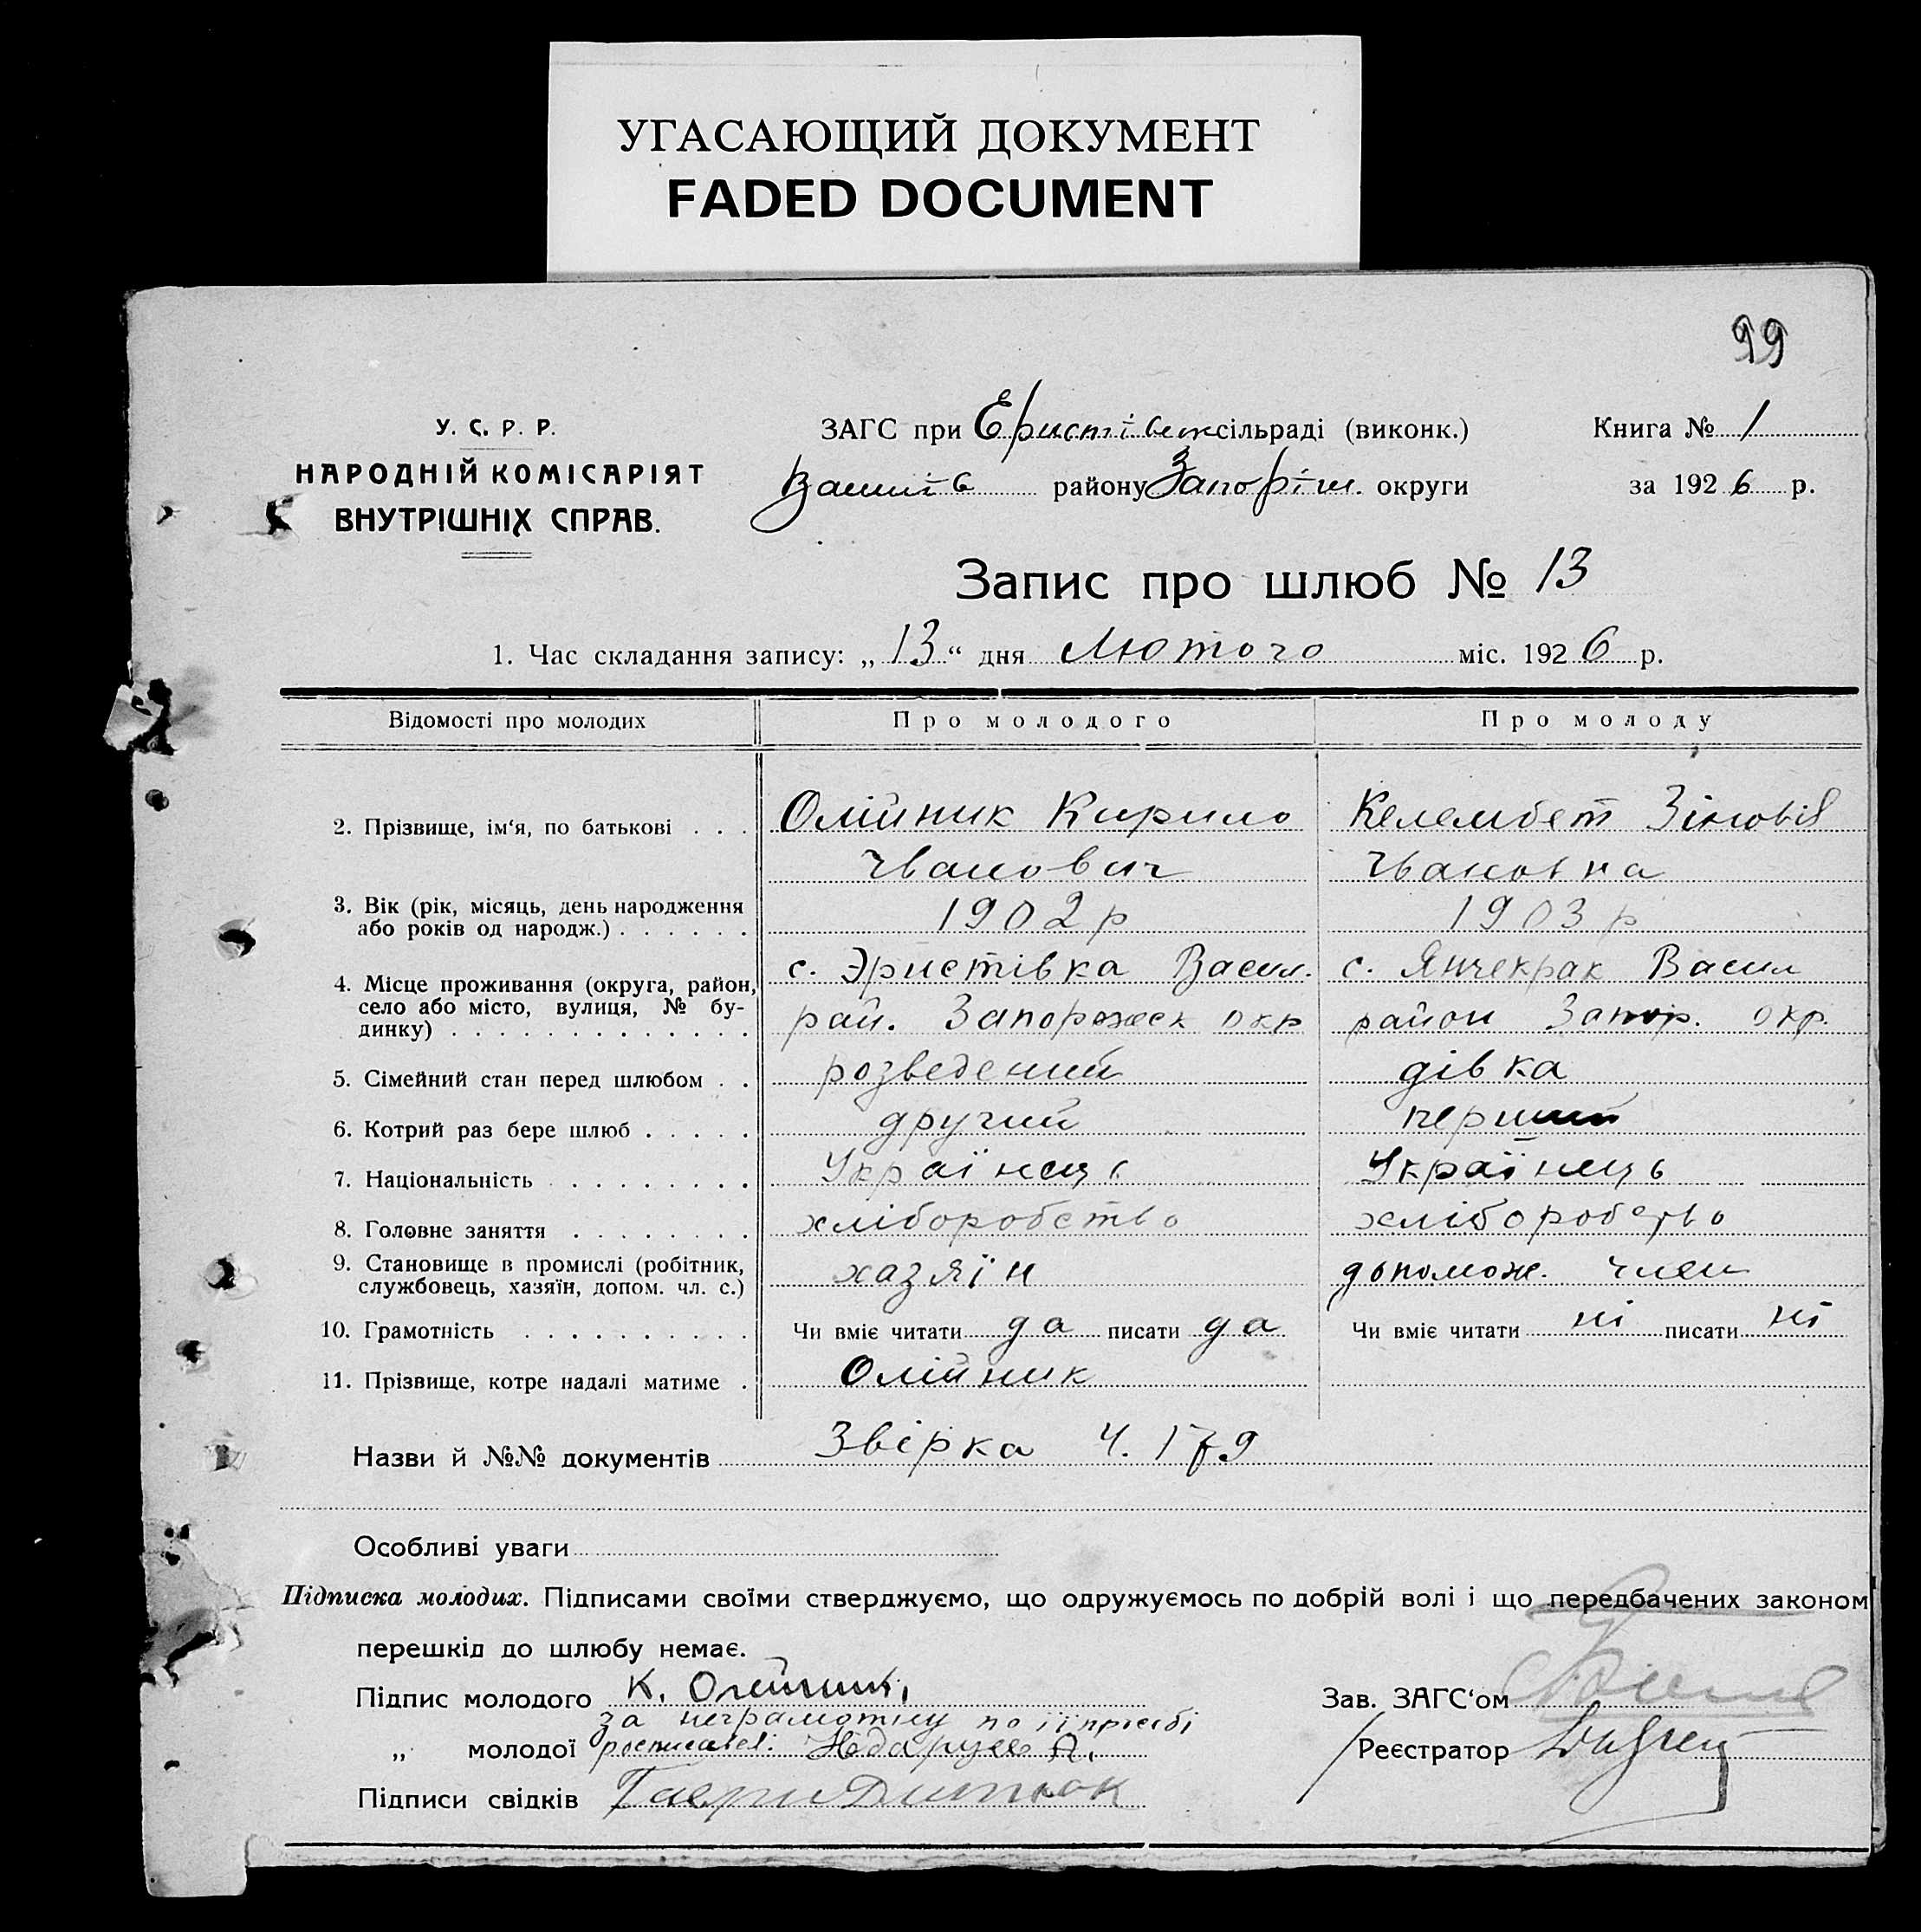 УГАСАЮЩИЙ ДОКУМЕНТ
FADED DOCUMENT
99
У. С. Р. Р.
НАРОДНІЙ КОМІСАРІЯТ
ВНУТРІШНІХ СПРАВ.
ЗАГС при Еристівск сільраді (виконк.)
району Запоріж. округи
Книга № 1
за 1926 р.
Запис про шлюб № 13
1. Час складання запису: „13“ дня Лютого міс. 1926 р.
Відомості про молодих Про молодого Про молоду
2. Прізвище, ім‘я, по батькові . . . Олійник Кирило Келембет Зіновія
Іванович Івановна
3. Вік (рік, місяць, день народження
або років од народж.) . . . . . . 1902 р 1903 р
4. Місце проживання (округа, район, с. Эристівка Васил. с. Янчекрак Васил
село або місто, вулиця, № бу-
динку) . . . . . . . . . . . . . рай. Запорожск окр район Запор. окр.
5. Сімейний стан перед шлюбом . . розведений дівка
6. Котрий раз бере шлюб . . . . . другий перший
7. Національність . . . . . . . . Українець Українець
8. Головне заняття . . . . . . . . хліборобство хліборобство
9. Становище в промислі (робітник,
службовець, хазяїн, допом. чл. с.) хазяїн допомож. член
10. Грамотність . . . . . . . . . . Чи вміє читати да писати да Чи вміє читати ні писати ні
11. Прізвище, котре надалі матиме . Олійник
Назви й №№ документів Звірка Ч. 179
Особливі уваги
Підписка молодих. Підписами своїми стверджуємо, що одружуємось по добрій волі і що передбачених законом
перешкід до шлюбу немає.
Підпис молодого К. Олейник Зав. ЗАГС‘ом
за неграмотну по її прозьбі
„ молодої росписався: А. Реєстратор
Підписи свідків